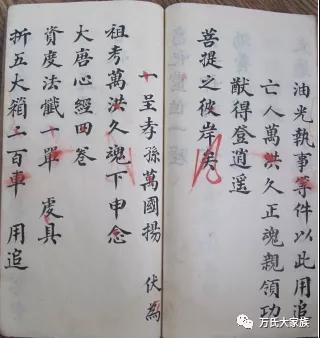 油光執事等件以此用追
亡人萬洪久正魂親領功
猷得登逍遥
菩提之彼岸矣
一呈孝孫萬國揚 伏為
祖考萬洪久魂下申念
大唐心經四卷
資度法懺一單 虔具
折五大箱二百車 用追
万氏大家族